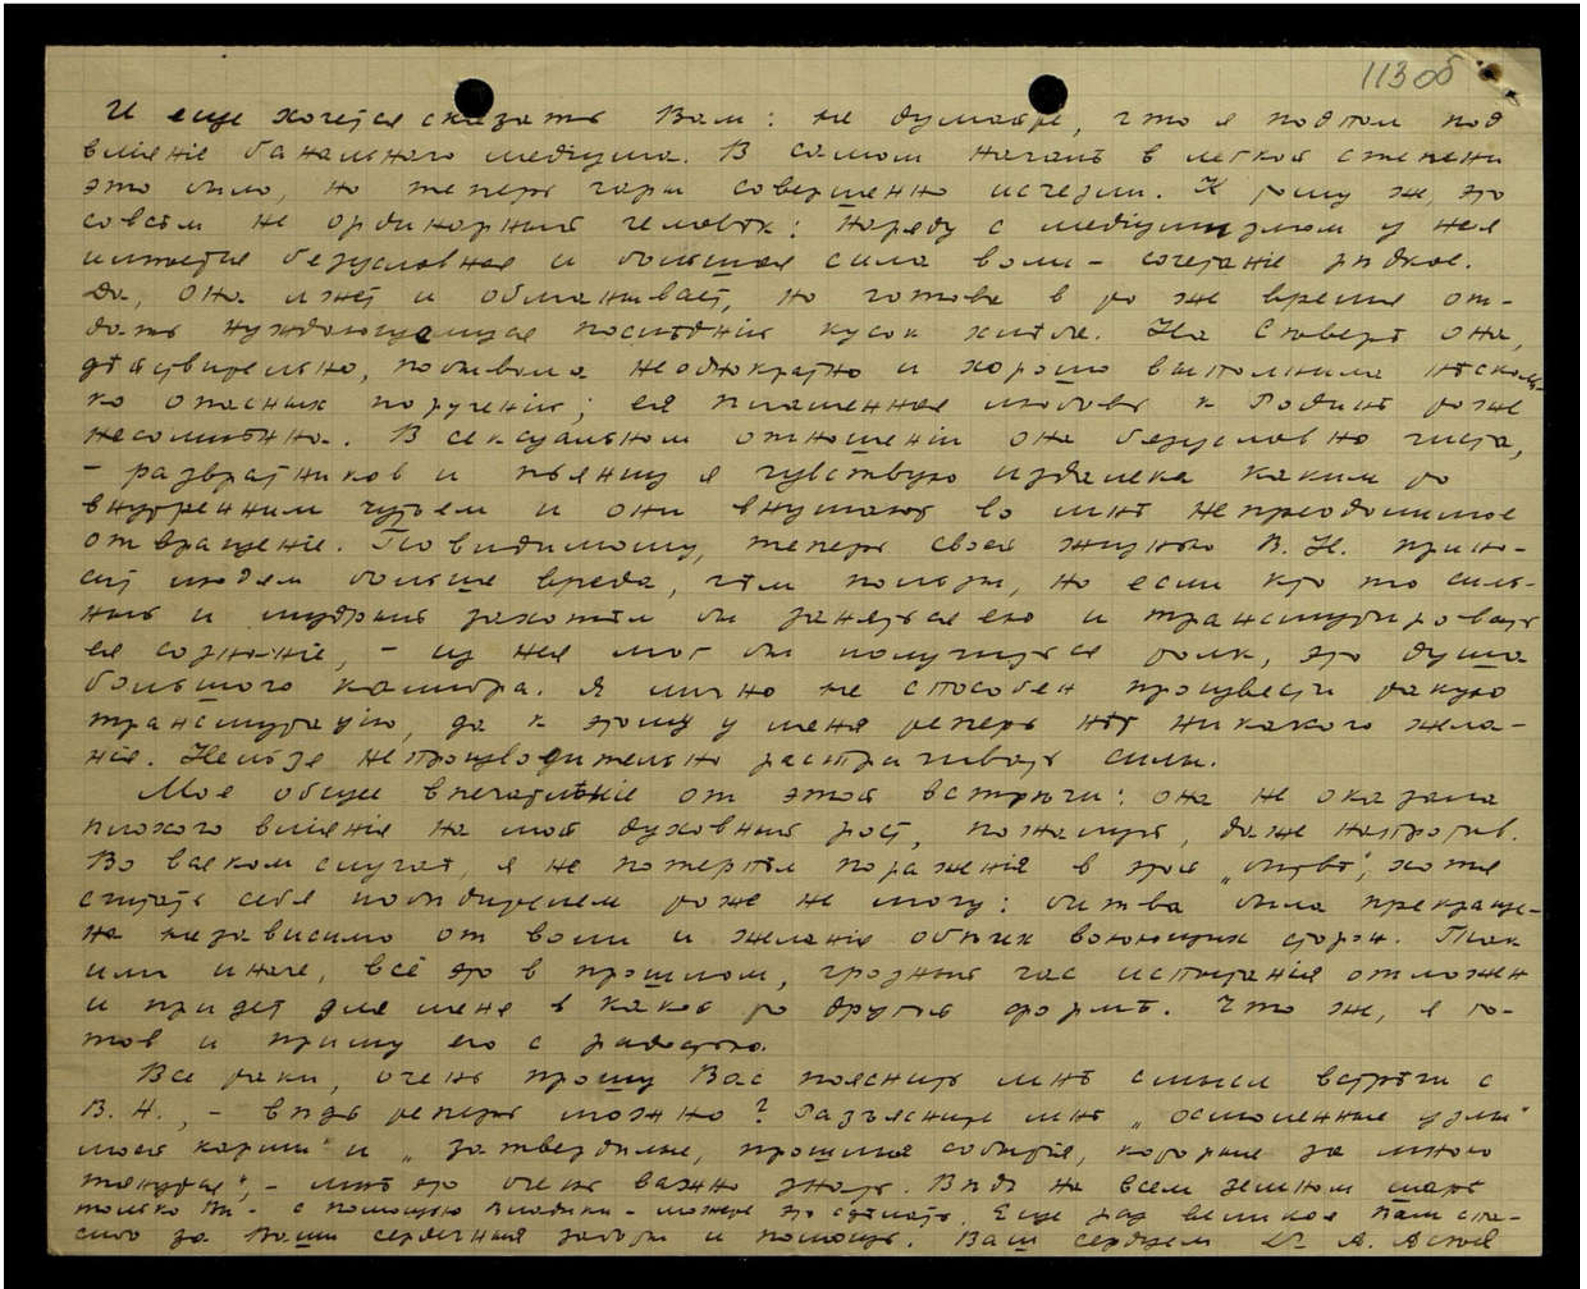 113 об
И еще хочется сказать Вам: не думайте, что я подпал под
влiянiе банального медiума. В самом началѣ в легкой степени
это было, но теперь чары совершенно исчезли. К тому же, это
совсѣм не ординарный человѣк: наряду с медiумизмом у нея
имѣется безусловная и большая сила воли – сочетанiе рѣдкое.
Да, она лжет и обманывает, но готова в то же время от-
дать нуждающемуся послѣднiй кусок хлѣба. На Сѣверѣ она,
дѣйствительно, побывала неоднократно и хорошо выполнила нѣсколь-
ко опасных порученiй; ея пламенная любовь к Родинѣ тоже
несомнѣнна. В сексуальном отношенiи она безусловно чиста,
– развратников и пьяниц я чувствую издалека каким то
внутренним чутьем и они внушают во мнѣ непреодолимое
отвращенiе. Повидимому, теперь своей жизнью В. Н. прино-
сит людям больше вреда, чѣм пользы, но если кто то силь-
ный и мудрый захотѣл бы заняться ею и трансмутировать
ея сознанiе, – из нея мог бы получиться толк, это душа
большого калибра. Я лично не способен произвести такую
трансмутацiю, да к этому у меня теперь нѣт никакого жела-
нiя. Нельзя непроизводительно растрачивать силы.
Мое общее впечатлѣнiе от этой встрѣчи: она не оказала
плохого влiянiя на мой духовный рост, пожалуй, даже напротив.
Во всяком случаѣ, я не потерпѣл пораженiя в этой „битвѣ", хотя
считать себя побѣдителем тоже не могу: битва была прекраще-
на независимо от воли и желанiя обѣих воюющих сторон. Так
или иначе, всё это в прошлом, грозный час испытанiя отложен
и придет для меня в какой то другой формѣ. Что же, я го-
тов и приму его с радостью.
Все таки, очень прошу Вас пояснить мнѣ смысл встрѣчи с
В. Н., – вѣдь теперь можно? Разъясните мнѣ „осмоленные узлы
моей кармы" и „затвердѣлые, прошлые событiя, которые за мною
тянутся", – мнѣ это очень важно знать. Вѣдь на всем земном шарѣ
только Вы – с помощью Владыки – можете это сдѣлать. Еще раз великое Вам спа-
сибо за Ваши сердечныя заботы и помощь. Ваш сердцем А. Асеев